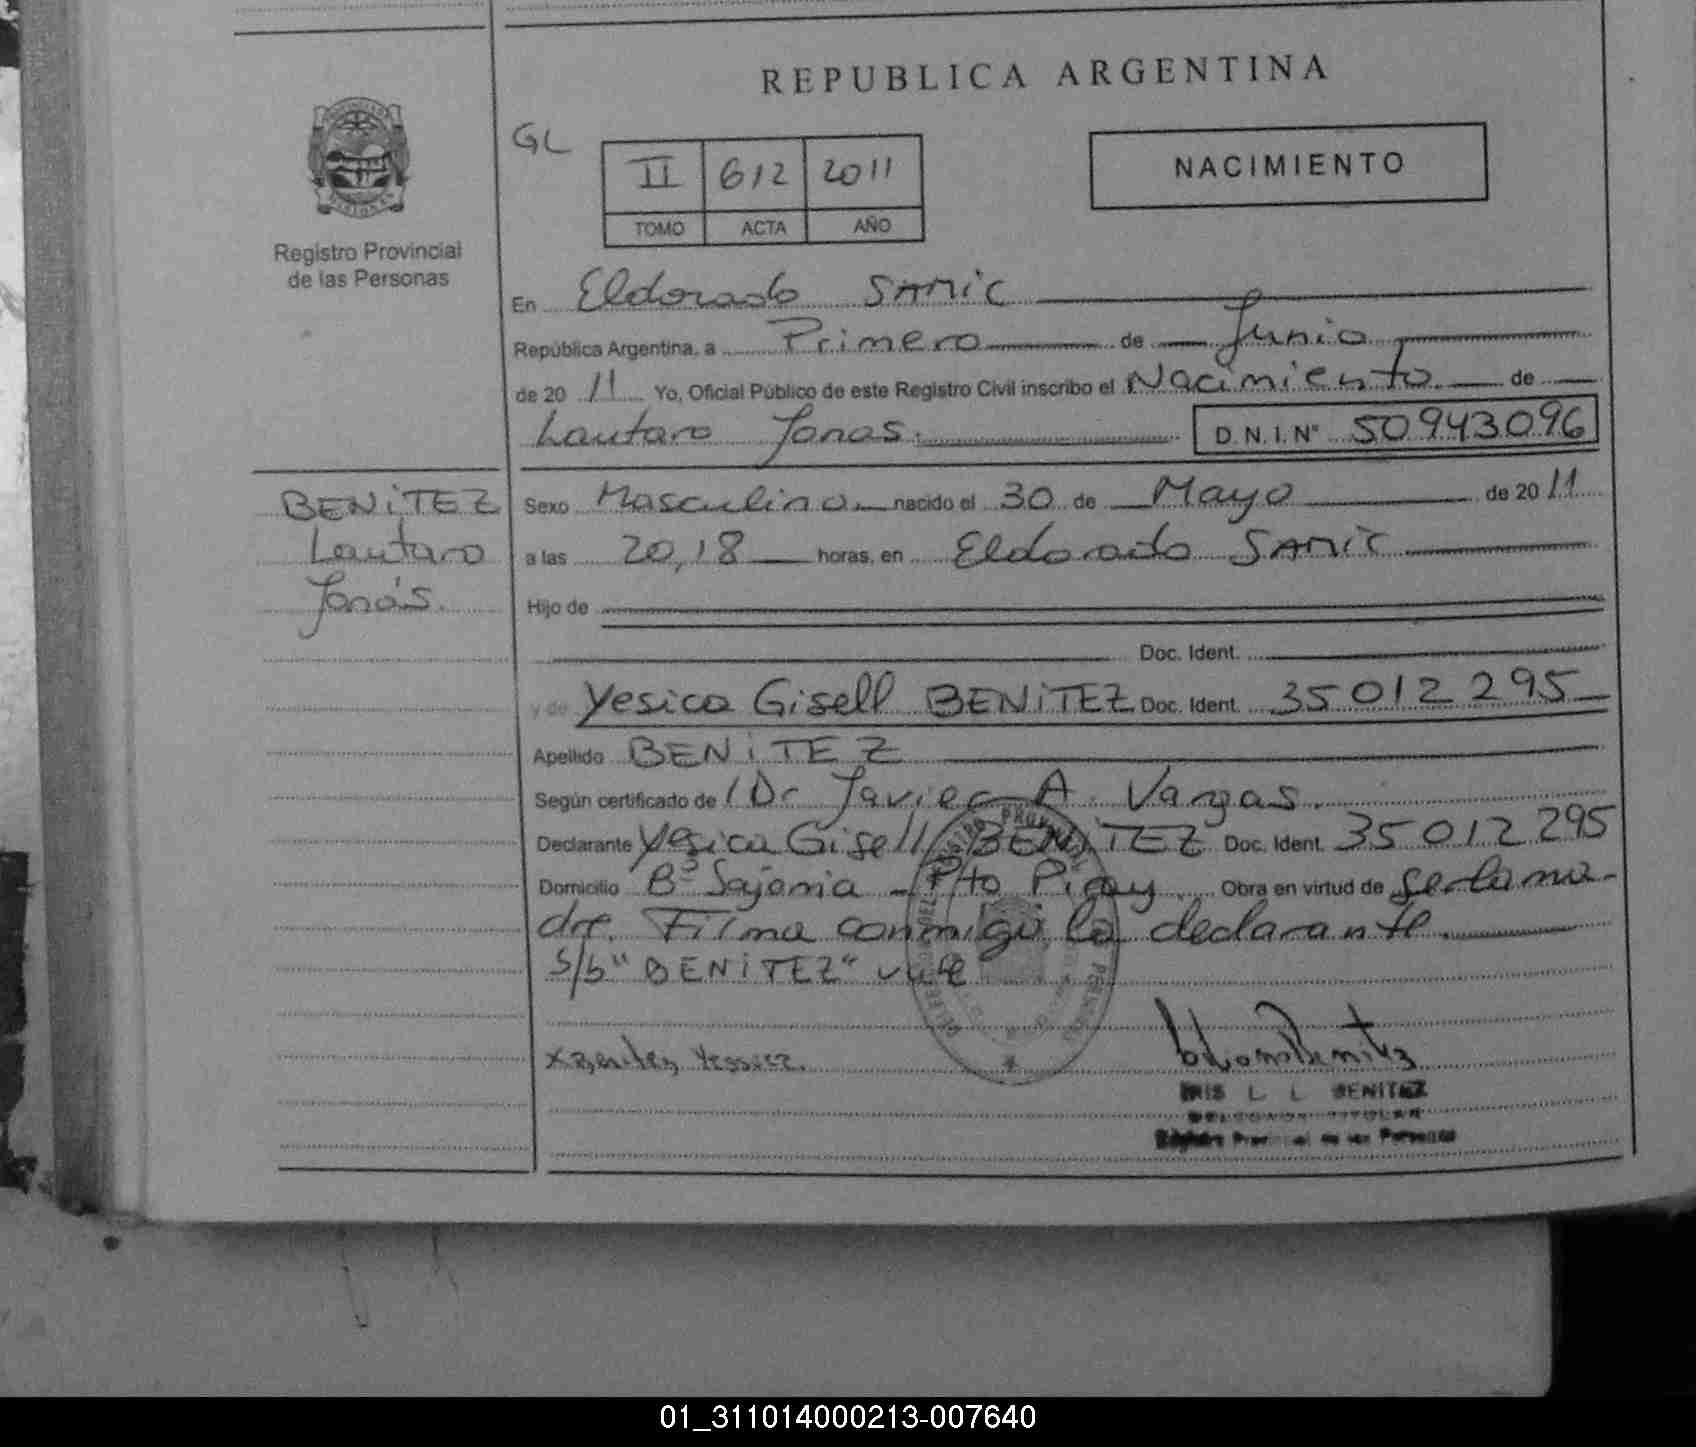 REPUBLICA ARGENTINA
GL
II 612 2011
TOMO ACTA AÑO
NACIMIENTO
Registro Provincial
de las Personas
En Eldorado SAMIC
República Argentina, a Primero de Junio
de 2011 Yo, Oficial Público de este Registro Civil inscribo el Nacimiento de
Lautaro Jonas. D.N.I.N° 50943096
BENITEZ
Lautaro
Jonás.
Sexo Masculino nacido el 30 de Mayo de 2011
a las 20,18 horas, en Eldorado SAMIC
Hijo de
Doc. Ident.
y de Yesica Gisell BENITEZ Doc. Ident. 35012295
Apellido BENITEZ
Según certificado de Dr Javier A. Vargas.
Declarante Yesica Gisell BENITEZ Doc. Ident. 35012295
Domicilio B° Sajonia - Pto Piray Obra en virtud de ser la ma-
dre. Firma conmigo la declarante.
S/b "BENITEZ" vale
x Benitez Yessica.
IRIS L. L. BENITEZ
DELEGADA TITULAR
Registro Provincial de las Personas
01_311014000213-007640